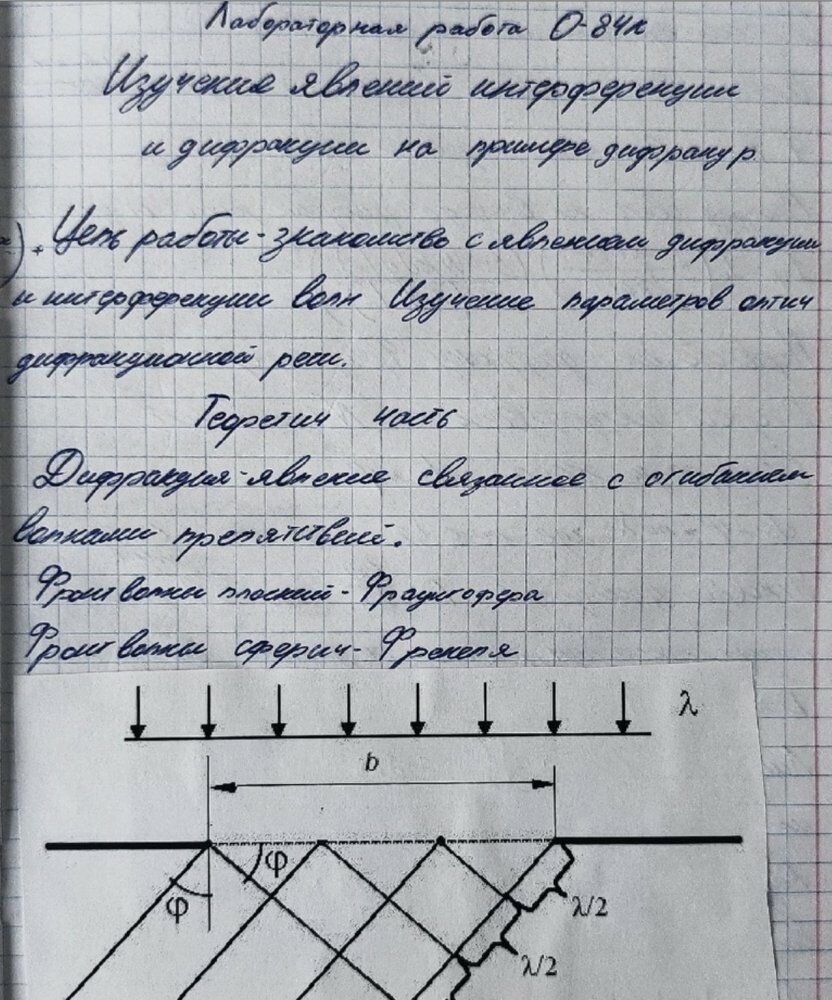 Лабораторная работа О-84к
Изучение явлений интерференции
и дифракции на примере дифракц р
Цель работы - знакомство с явлением дифракции
и интерференции волн Изучение параметров оптич
дифракционной реш.
Теоретич часть
Дифракция - явление связанное с огибанием
волнами препятствий.
Фронт волны плоский - Фраунгофера
Фронт волны сферич - Френеля
λ
b
φ
φ
λ/2
λ/2